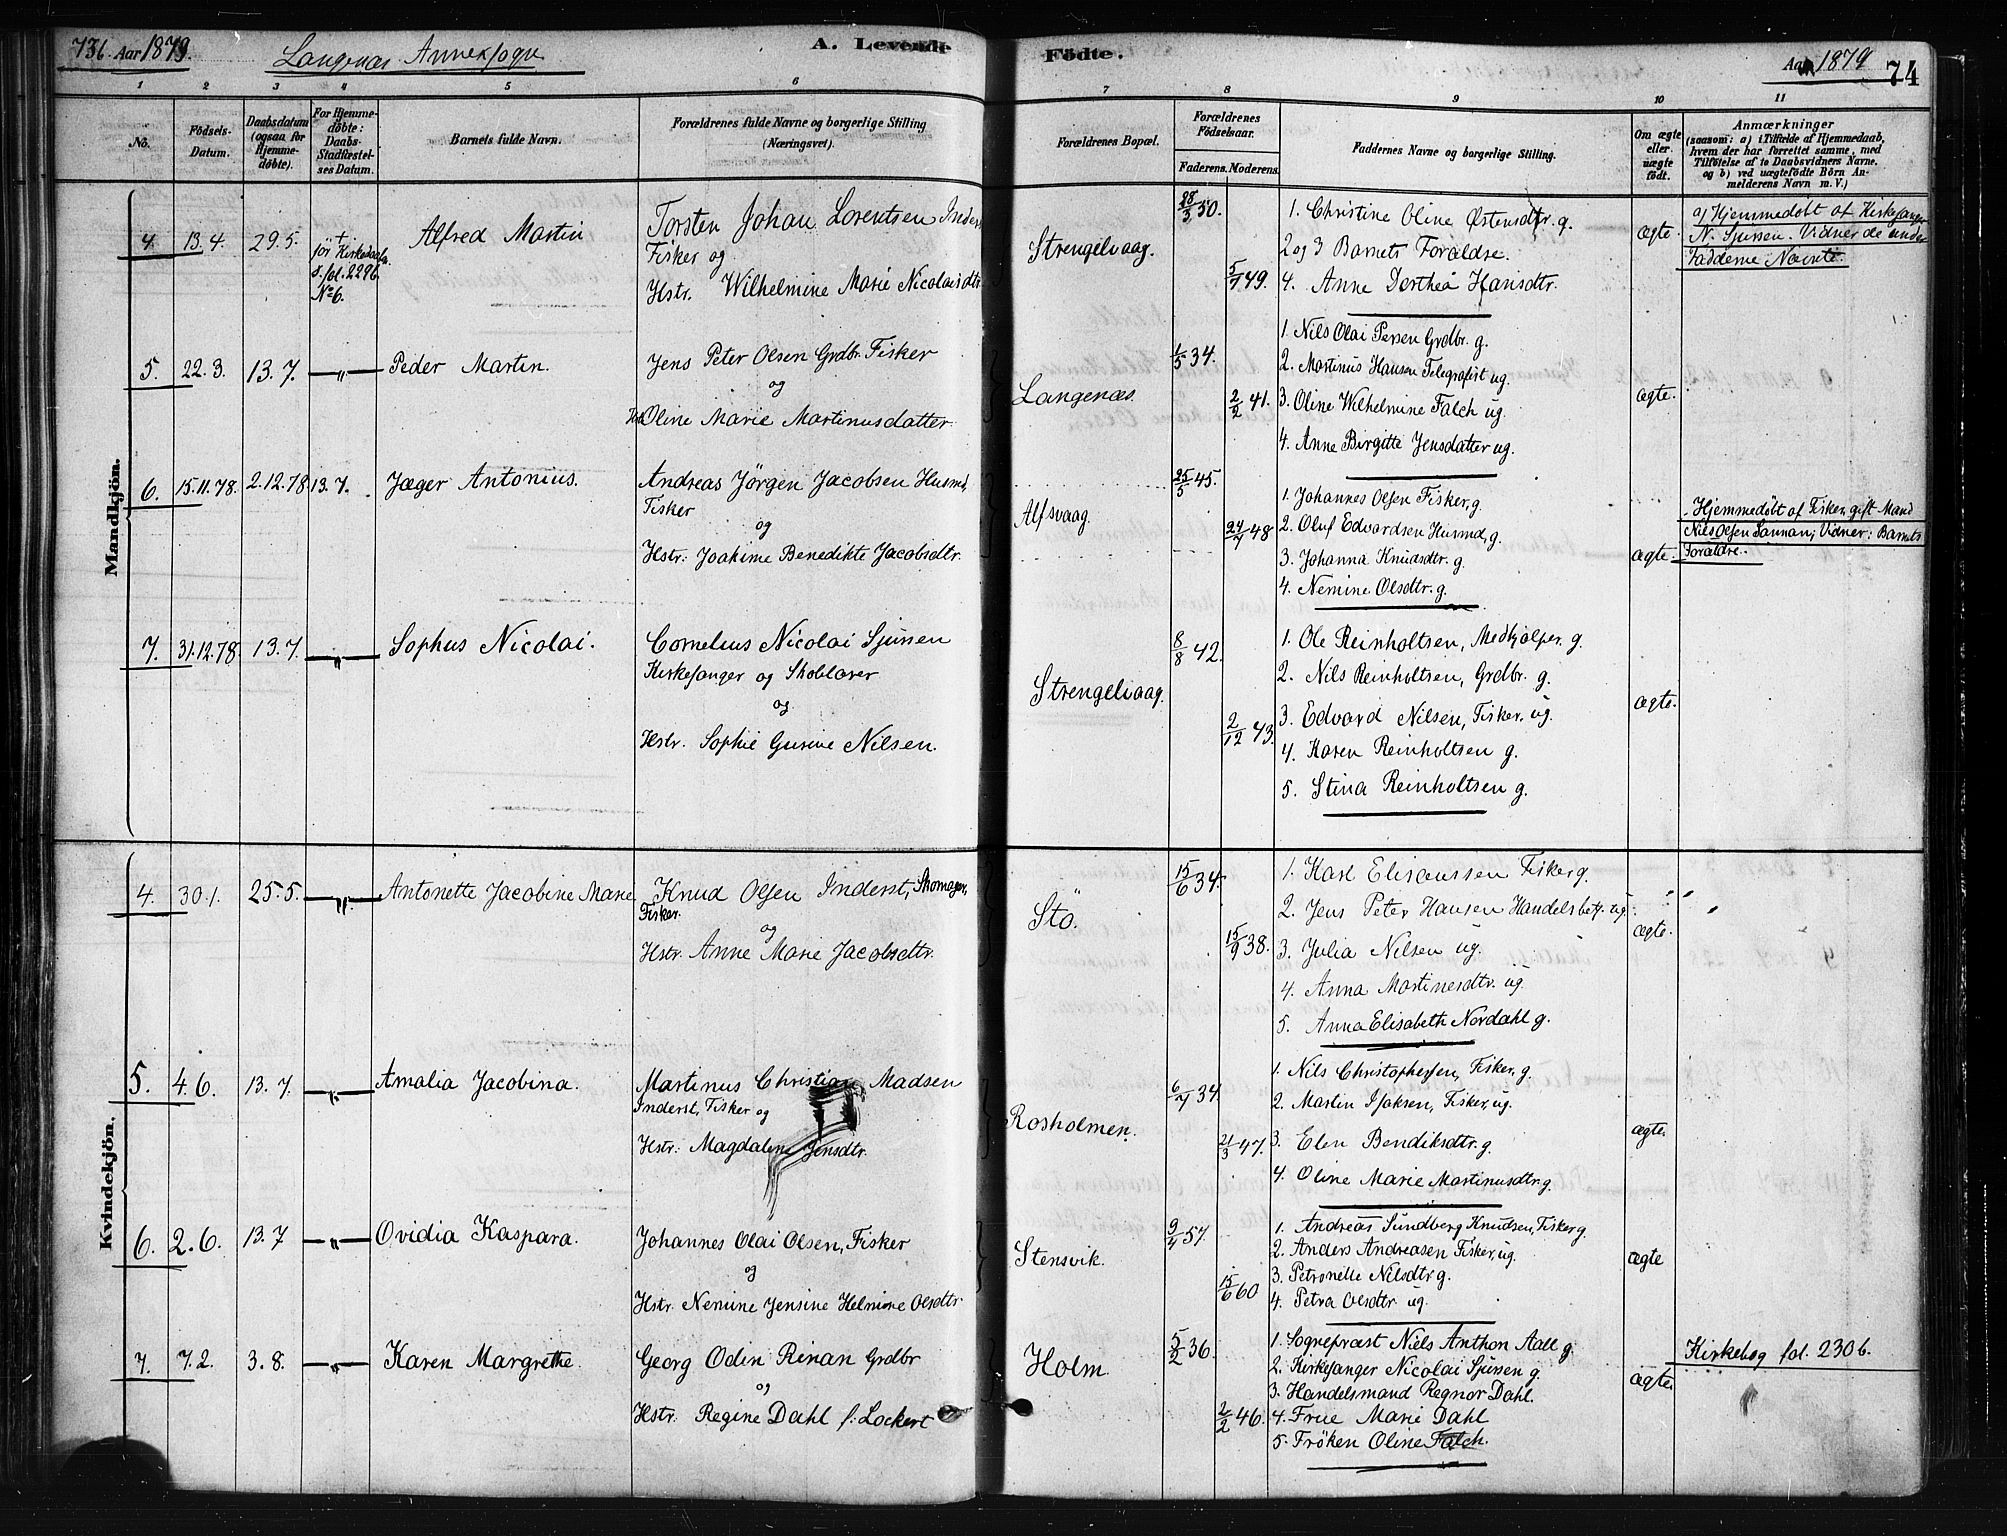 73b. Aar 1879. Langenæs Annexsogn A. Levende
1 2 3 4 5 6
No. Födsels-Datum. Daabsdatum (ogsaa for Hjemmedöbte). For Hjemmedöbte: Daabs-Stadfæstelses Datum. Barnets fulde Navn. Forældrenes fulde Navne og borgerlige Stilling (Næringsvei).
Mandkjön.
4. 13.4. 29.5. Alfred Martin Torsten Johan Lorentsen Inderst
Fisker og
s. fol. 229b.
No 6.
Hstr. Wilhelmine Marie Nicolaisdtr.
5. 22.3. 13.7. —"— Peder Martin. Jens Peter Olsen Grdbr. Fisker
og
Oline Marie Martinusdatter
6. 15.11.78. 2.12.78 13.7. Jæger Antonius. Andreas Jørgen Jacobsen Husmd,
Fisker
og
Hstr. Joakime Benedikte Jacobsdtr.
7. 31.12.78. 13.7. —"— Sophus Nicolai. Cornelius Nicolai Sjursen
Kirkesanger og Skolelærer
og
Hstr. Sophie Gurine Nilsen.
Kvindekjön.
4. 30.1. 25.5. —"— Antonette Jacobine Marie Knud Olsen Inderst, Skomager,
Fisker.
og
Hstr. Anne Marie Jacobsdtr.
5. 4.6. 13.7. —"— Amalia Jacobina. Martinus Christian Madsen
Inderst, Fisker og
Hstr. Magdalena Jensdtr.
6. 2.6. 13.7 —"— Ovidia Kaspara. Johannes Olai Olsen, Fisker
og
Hstr. Nemine Jensine Helmine Olsdtr.
7. 7.2. 3.8. —"— Karen Margrethe. Georg Odin Rinan Grdbr
og
Hstr. Regine Dahl f. Lockert
Födte. Aar 1879 74
7 8 9 10 11
Forældrenes Bopæl. Forældrenes Födselsaar. Faderens. Moderens. Faddernes Navne og borgerlige Stilling. Om ægte eller uægte födt. Anmærkninger (saasom: a) i Tilfælde af Hjemmedaab, hvem der har forrettet samme, med Tilföielse af to Daabsvidners Navne, og b) ved uægtefödte Börn Anmelderens Navn m. V.)
Strengelvaag. 28/3 50. 5/7 49. ægte.
1. Christine Oline Østensdtr. g.
2 og 3 Barnets Forældre.
4. Anne Dorthea Hansdtr.
a) Hjemmedøbt af Kirkesanger
N. Sjursen. Vidner de under
Fadderne Nævnte.
Langenæs. 1/5 34. 2/2 41. ægte.
1. Nils Olai Persen Grdbr. g.
2. Martinus Hansen Telegrafist ug.
3. Oline Wilhelmine Falch ug.
4. Anne Birgitte Jensdatter ug.
Alfsvaag. 25/5 45. 24/7 48 ægte.
1. Johannes Olsen Fisker, g.
2. Oluf Edvardsen Husmd, g.
3. Johanna Knudsdtr. g.
4. Nemine Olsdtr. g.
Hjemmedøbt af Fisker, gift Mand
Nils Olsen Sannan; Vidner: Barnets
Forældre.
Strengelvaag. 8/8 42. 2/12 43. ægte.
1. Ole Reinholtsen, Medhjælper. g.
2. Nils Reinholtsen, Grdbr. g.
3. Edvard Nilsen, Fisker. ug.
4. Karen Reinholtsen g.
5. Stina Reinholtsen g.
Stö. 15/6 34. 15/9 38. ægte.
1. Karl Elisæussen Fisker g.
2. Jens Peter Hansen Handelsbetj. ug.
3. Julia Nilsen ug.
4. Anna Martinesdtr. ug.
5. Anna Elisabeth Nordahl g.
Rosholmen. 6/7 34. 21/3 47. ægte.
1. Nils Christophersen, Fisker, g.
2. Martin Isaksen, Fisker, ug.
3. Elen Bendiksdtr. g.
4. Oline Marie Martinusdtr. g.
Stensvik. 9/4 57. 15/6 60 ægte
1. Andreas Sundberg Knudsen, Fisker g.
2. Anders Andreasen Fisker, ug.
3. Petronelle Nilsdtr g.
4. Petra Olsdtr ug.
Holm. 5/2 36. 2/2 46. ægte
1. Sognepræst Niels Anthon Aall g.
2. Kirkesanger Nicolai Sjursen g.
3. Handelsmand Regnor Dahl.
4. Frue Marie Dahl
5. Frøken Oline Falch.
Kirkebog fol. 230 b.